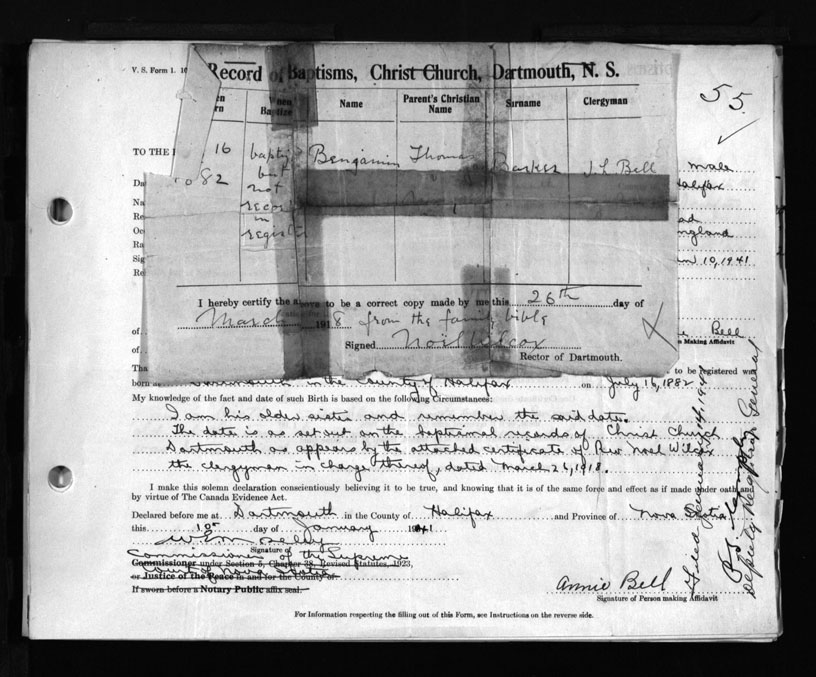 V. S. Form 1.
Record of Baptisms, Christ Church, Dartmouth, N. S.
55.
When Baptized
Name
Parent's Christian Name
Surname
Clergyman
TO THE
16
baptized
Benjamin
Thomas
Barker
J. L. Bell
male
82
but
Halifax
not
record
in
England
register
Jan 10, 1941
I hereby certify the above to be a correct copy made by me this 26th day of
March 1918 from the family bible
Signed Noel Wilcox
Rector of Dartmouth.
of
Bell
of
Person Making Affidavit
to be registered was
born at Dartmouth in the County of Halifax on July 16, 1882
My knowledge of the fact and date of such Birth is based on the following Circumstances:
I am his older sister and remember the said date.
The date is as set out on the baptismal records of Christ Church
Dartmouth as appears by the attached certificate of Rev Noel Wilcox
the clergyman in charge thereof, dated March 26, 1918.
I make this solemn declaration conscientiously believing it to be true, and knowing that it is of the same force and effect as if made under oath and
by virtue of The Canada Evidence Act.
Declared before me at Dartmouth in the County of Halifax and Province of Nova Scotia
this 10th day of January 1941
Signature of
Commissioner of the Supreme
Commissioner under Section 5, Chapter 38, Revised Statutes, 1923,
Court of Nova Scotia
or Justice of the Peace in and for the County of
If sworn before a Notary Public affix seal.
Annie Bell
Signature of Person making Affidavit
Filed January 14, 194
Deputy Registrar General
For Information respecting the filling out of this Form, see Instructions on the reverse side.